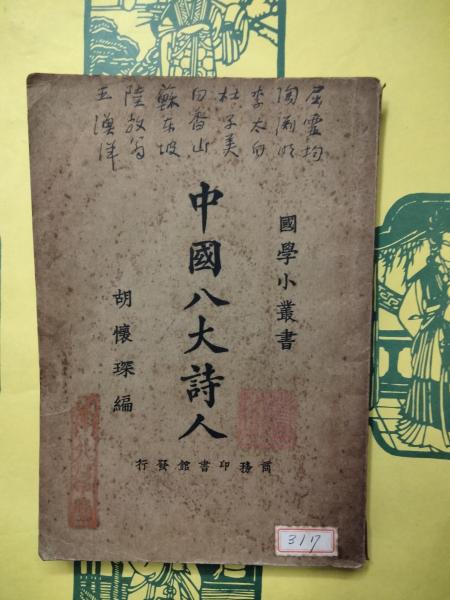 屈靈均
陶淵明
李太白
杜子美
白香山
蘇东坡
陸放翁
王漁洋
國學小叢書
中國八大詩人
胡懷琛編
商務印書館發行
317